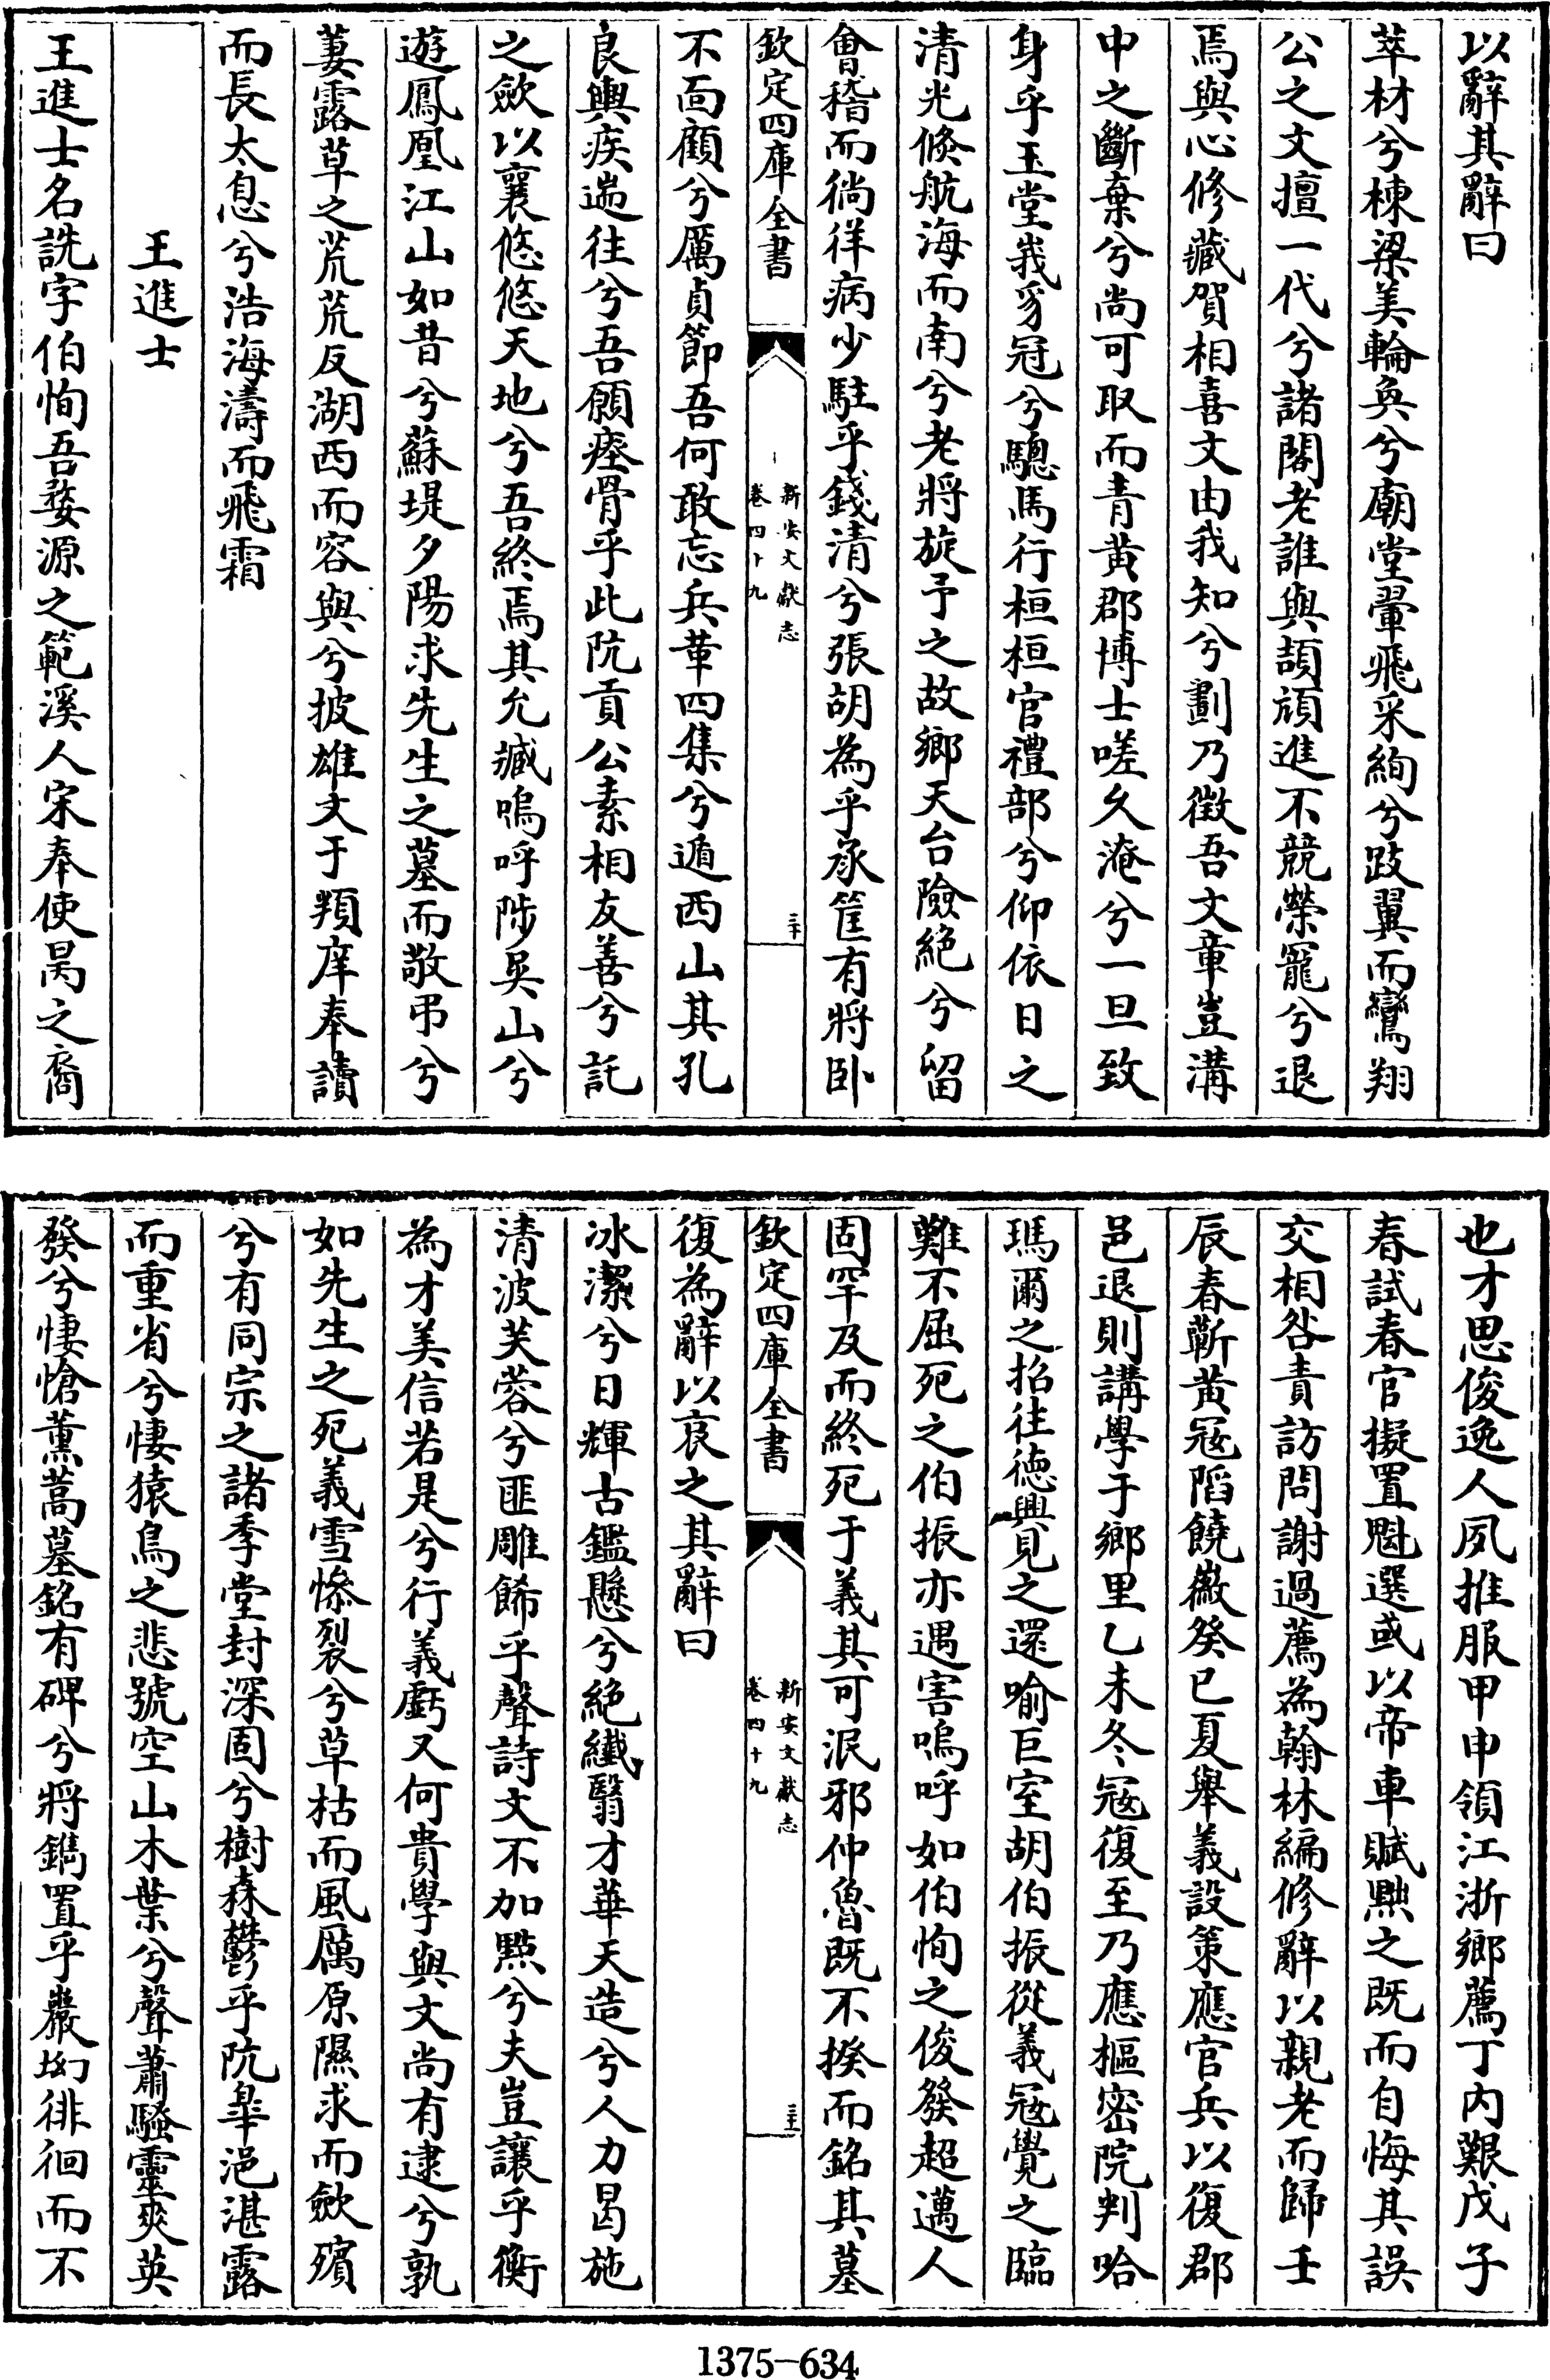 以辭其辭曰
萃材兮棟梁美輪奐兮廟堂翬飛采絢兮跂翼而鸞翔
公之文擅一代兮諸閣老誰與頡頏進不競榮寵兮退
焉與心修藏賀相喜文由我知兮劃乃徴吾文章豈溝
中之斷棄兮尚可取而青黃郡博士嗟久淹兮一旦致
身乎玉堂峩豸冠兮驄馬行桓桓官禮部兮仰依日之
清光倐航海而南兮老將旋予之故鄉天台險絶兮留
㑹稽而徜徉病少駐乎錢清兮張胡為乎承筐有將卧
欽定四庫全書
新安文獻志
卷四十九
三十
不面顧兮厲貞節吾何敢忘兵革四集兮遁西山其孔
良輿疾遄往兮吾願瘞骨乎此阬貢公素相友善兮託
之斂以襄悠悠天地兮吾終焉其允臧嗚呼陟吳山兮
遊鳳凰江山如昔兮蘇堤夕陽求先生之墓而敬弔兮
萋露草之荒荒反湖西而容與兮披雄文于頖庠奉讀
而長太息兮浩海濤而飛霜
王進士
王進士名詵字伯恂吾婺源之範溪人宋奉使昺之裔
也才思俊逸人夙推服甲申領江浙鄉薦丁内艱戊子
春試春官擬置魁選或以帝車賦黜之既而自悔其誤
交相咎責訪問謝過薦為翰林編修辭以親老而歸壬
辰春蘄黄冦陷饒徽癸已夏舉義設策應官兵以復郡
邑退則講學于鄉里乙未冬冦復至乃應樞密院判哈
瑪爾之招往德興見之還喻巨室胡伯振從義冦覺之臨
難不屈死之伯振亦遇害嗚呼如伯恂之俊發超邁人
固罕及而終死于義其可泯邪仲魯既不揆而銘其墓
欽定四庫全書
新安文獻志
卷四十九
三十一
復為辭以哀之其辭曰
冰潔兮日輝古鑑懸兮絶纎翳才華天造兮人力曷施
清波芙蓉兮匪雕餙乎聲詩文不加點兮夫豈讓乎衡
為才美信若是兮行義虧又何貴學與文尚有逮兮孰
如先生之死義雪慘裂兮草枯而風厲原隰求而斂殯
兮有同宗之諸季堂封深固兮樹森鬱乎阬臯浥湛露
而重省兮悽猿鳥之悲號空山木葉兮聲蕭騷靈爽英
發兮悽愴薰蒿墓銘有碑兮將鐫置乎巖坳徘徊而不
1375-634